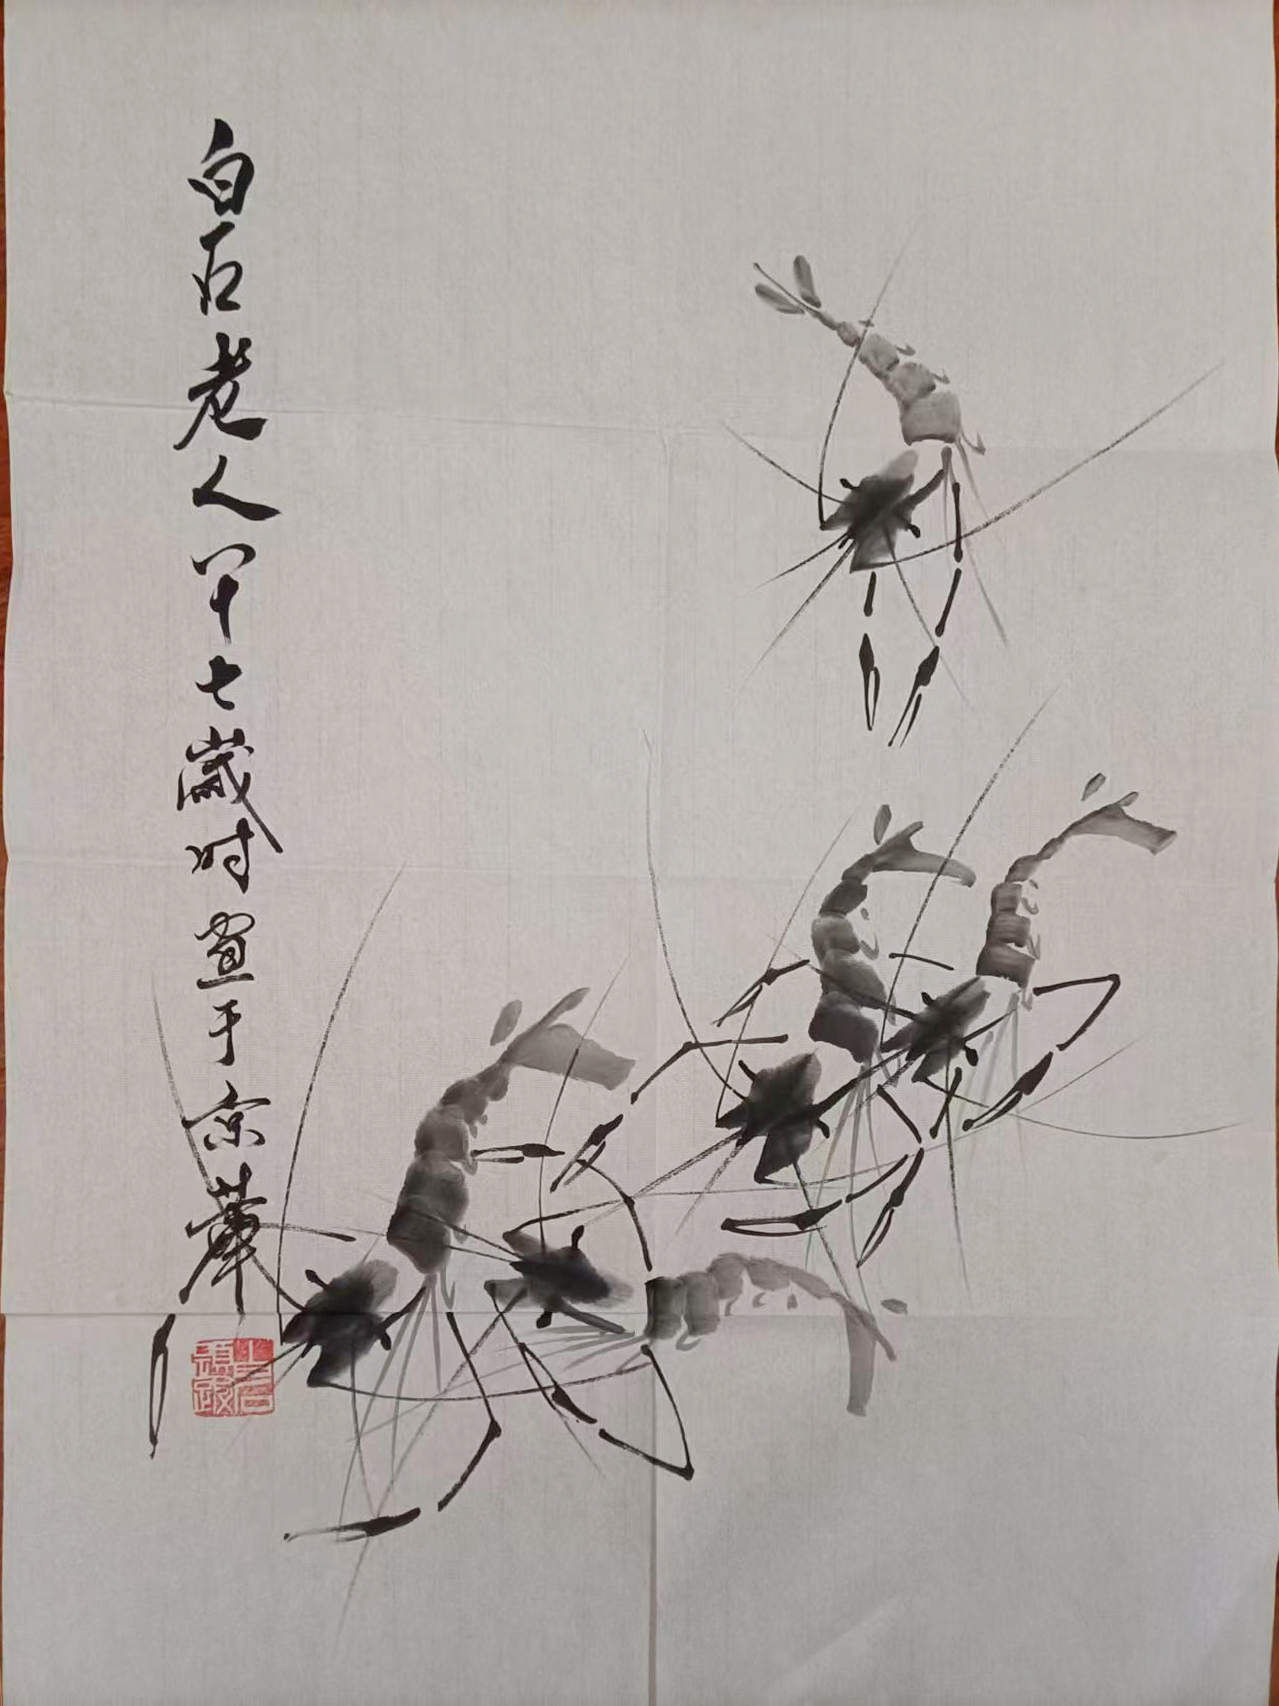 白石老人八十七歲时畫于京華